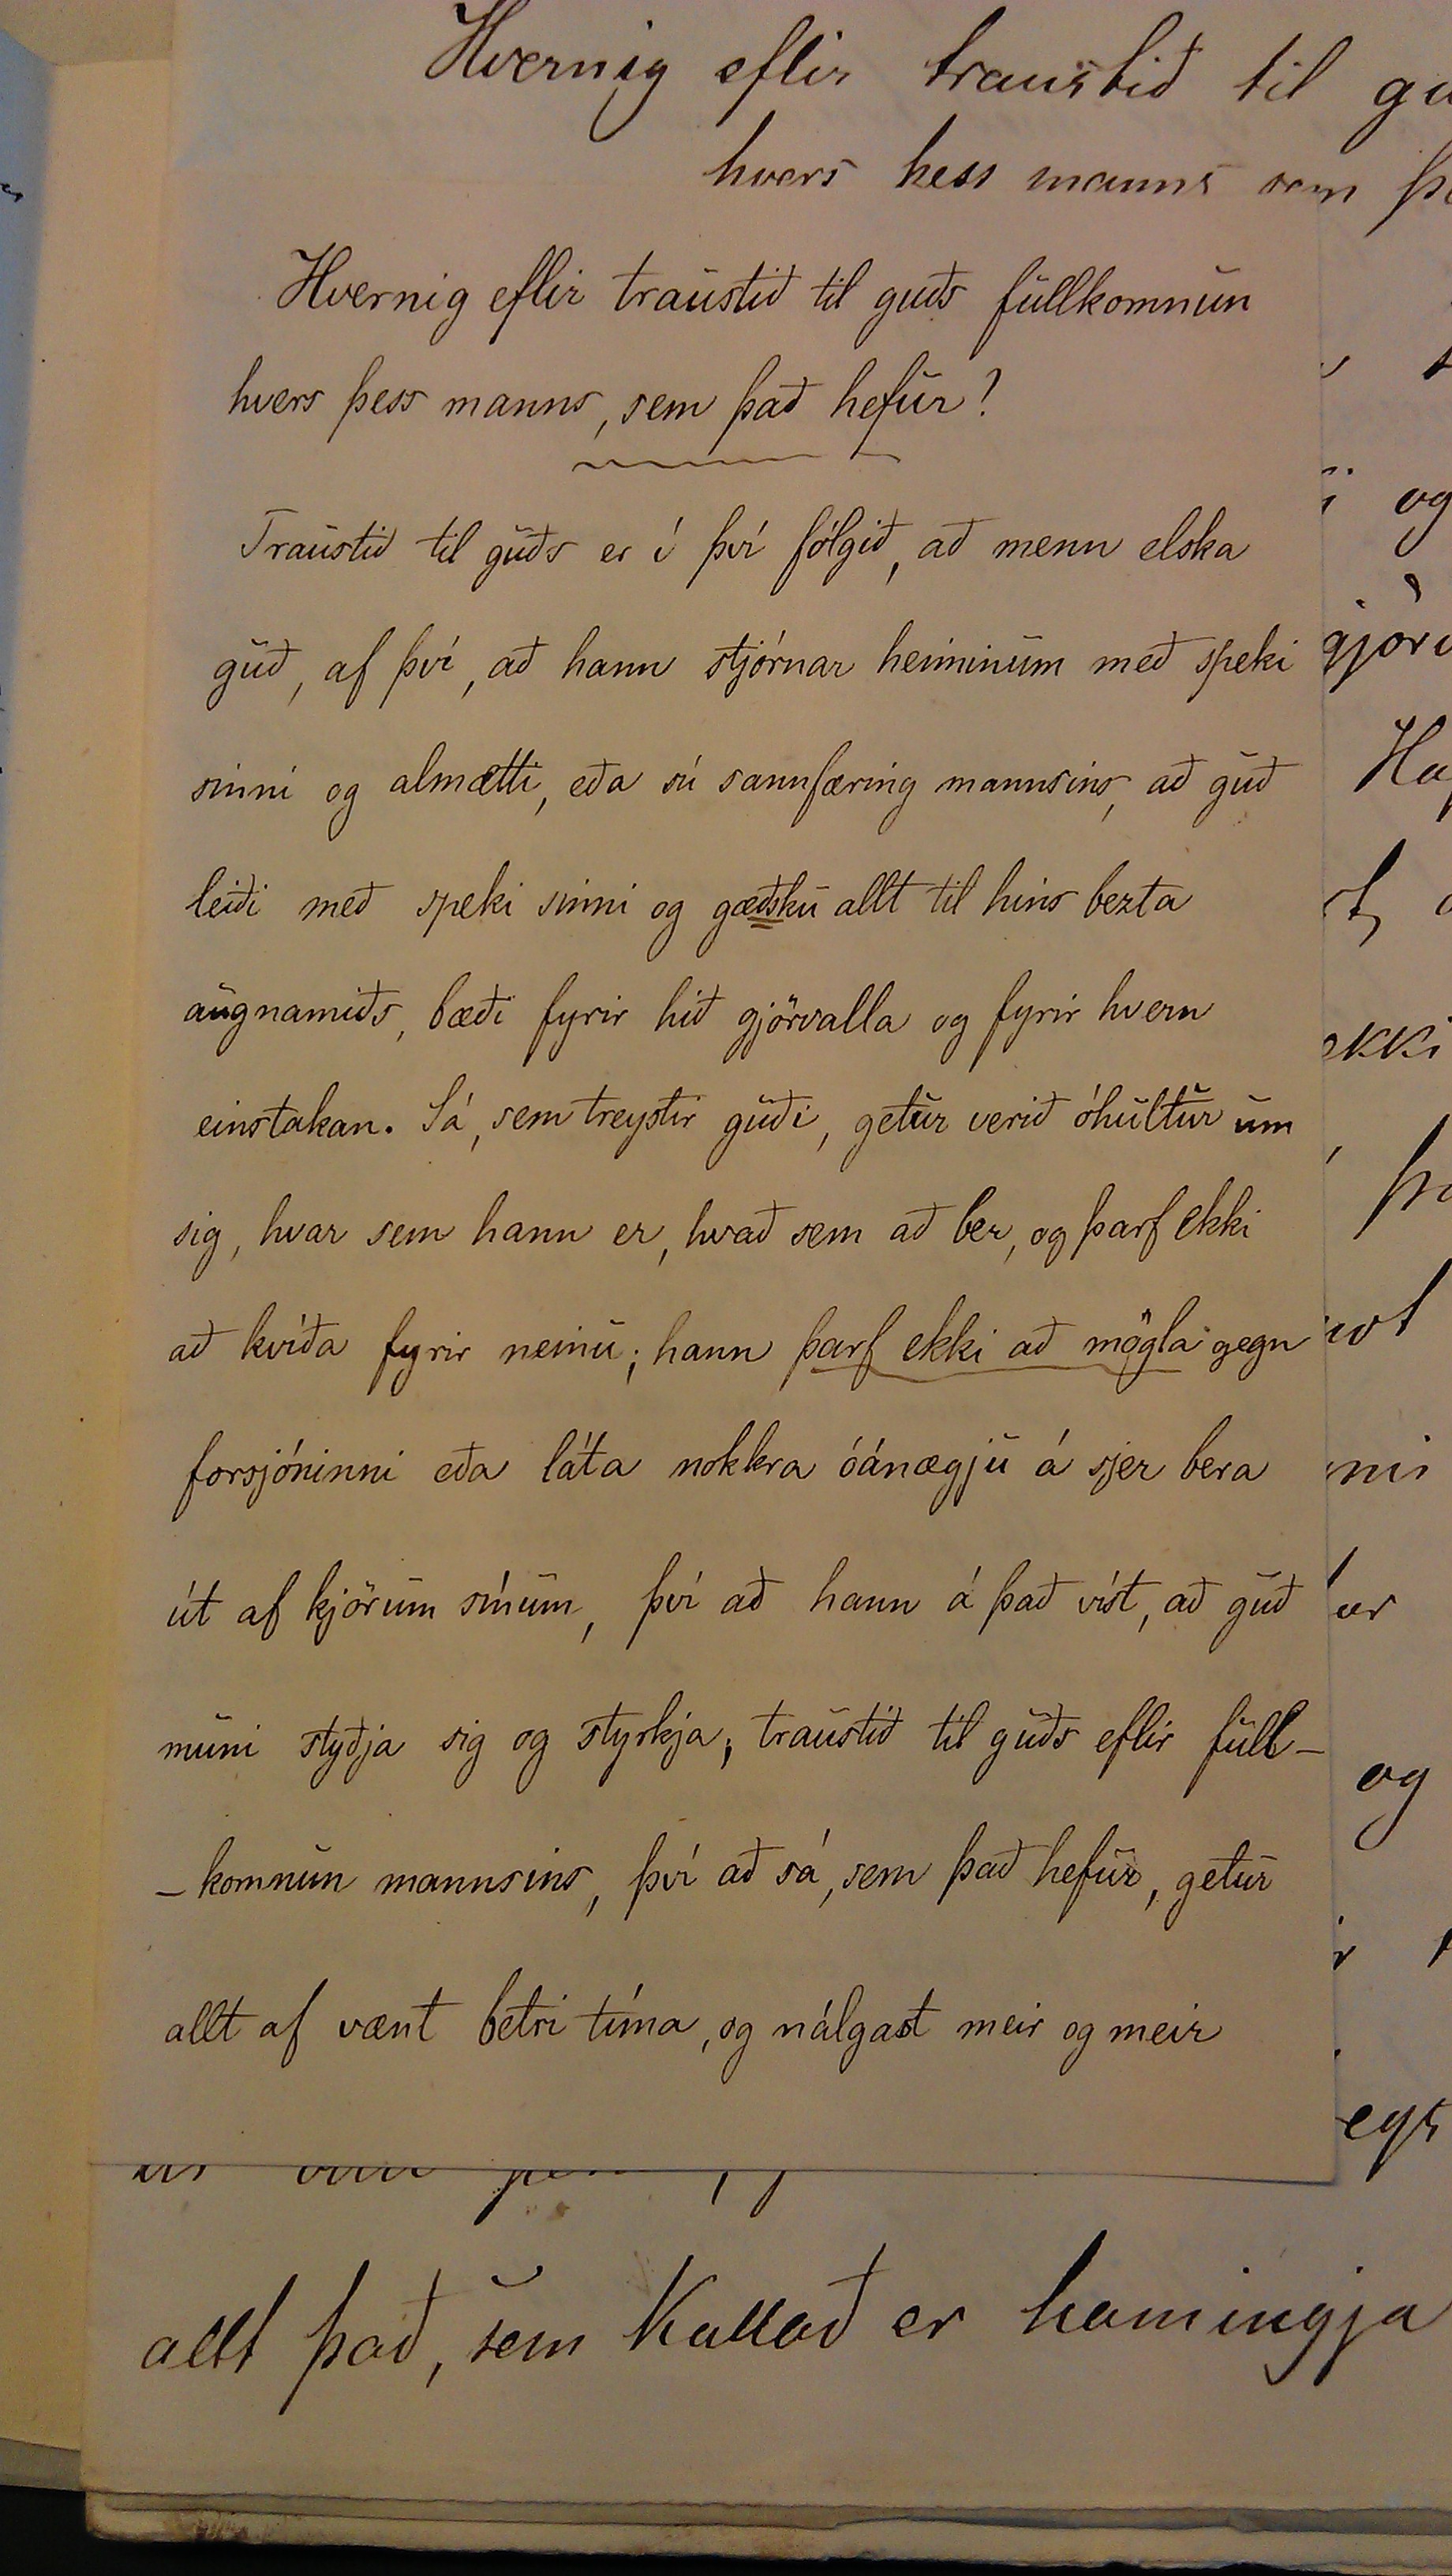 Hvernig eflir traustið til
hvers þess manns sem
Hvernig eflir traustið til guðs fullkomnun
hvers þess manns, sem það hefur?
Traustið til guðs er í því fólgið, að menn elska
guð, af því, að hann stjórnar heiminum með speki
sinni og almætti, eða sú sannfæring mannsins, að guð
leiði með speki sinni og gæðsku allt til hins bezta
augnamiðs, bæði fyrir hið gjörvalla og fyrir hvern
einstakan. Sá, sem treystir guði, getur verið óhultur um
sig, hvar sem hann er, hvað sem að ber, og þarf ekki
að kvíða fyrir neinu; hann þarf ekki að mögla gegn
forsjóninni eða láta nokkra óánægju á sjer bera
út af kjörum sínum, því að hann á það víst, að guð
muni styðja sig og styrkja; traustið til guðs eflir full-
-komnun mannsins, því að sá, sem það hefur, getur
allt af vænt betri tíma, og nálgast meir og meir
og
ekki
og
allt það, sem kallað er hamingja